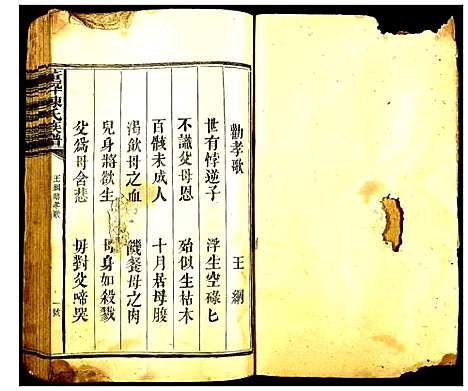 勸孝歌 王綱
世有悖逆子 浮生空碌匕
不識父母恩 殆似生枯木
百骸未成人 十月居母腹
渴飲母之血 饑餐母之肉
兒身將欲生 母身如殺戮
父爲母含悲 毋對父啼哭
陳氏族譜
王綱勸孝歌
一號